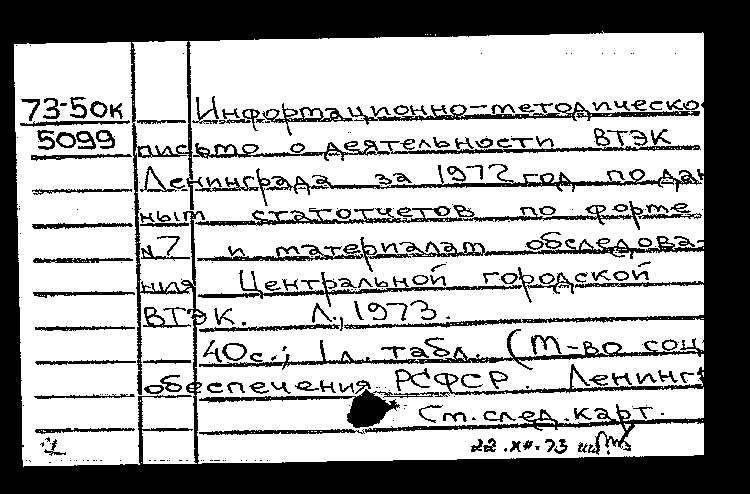 73-50к Информационно-методическо
5099 письмо о деятельности ВТЭК
Ленинграда за 1972 год по дан
ным статотчетов по форме
№7 и материалам обследова-
ния Центральной городской
ВТЭК. Л., 1973.
40с.; 1л. табл. (М-во соц
обеспечения РСФСР. Ленингр
См. след. карт.
22.XII.73